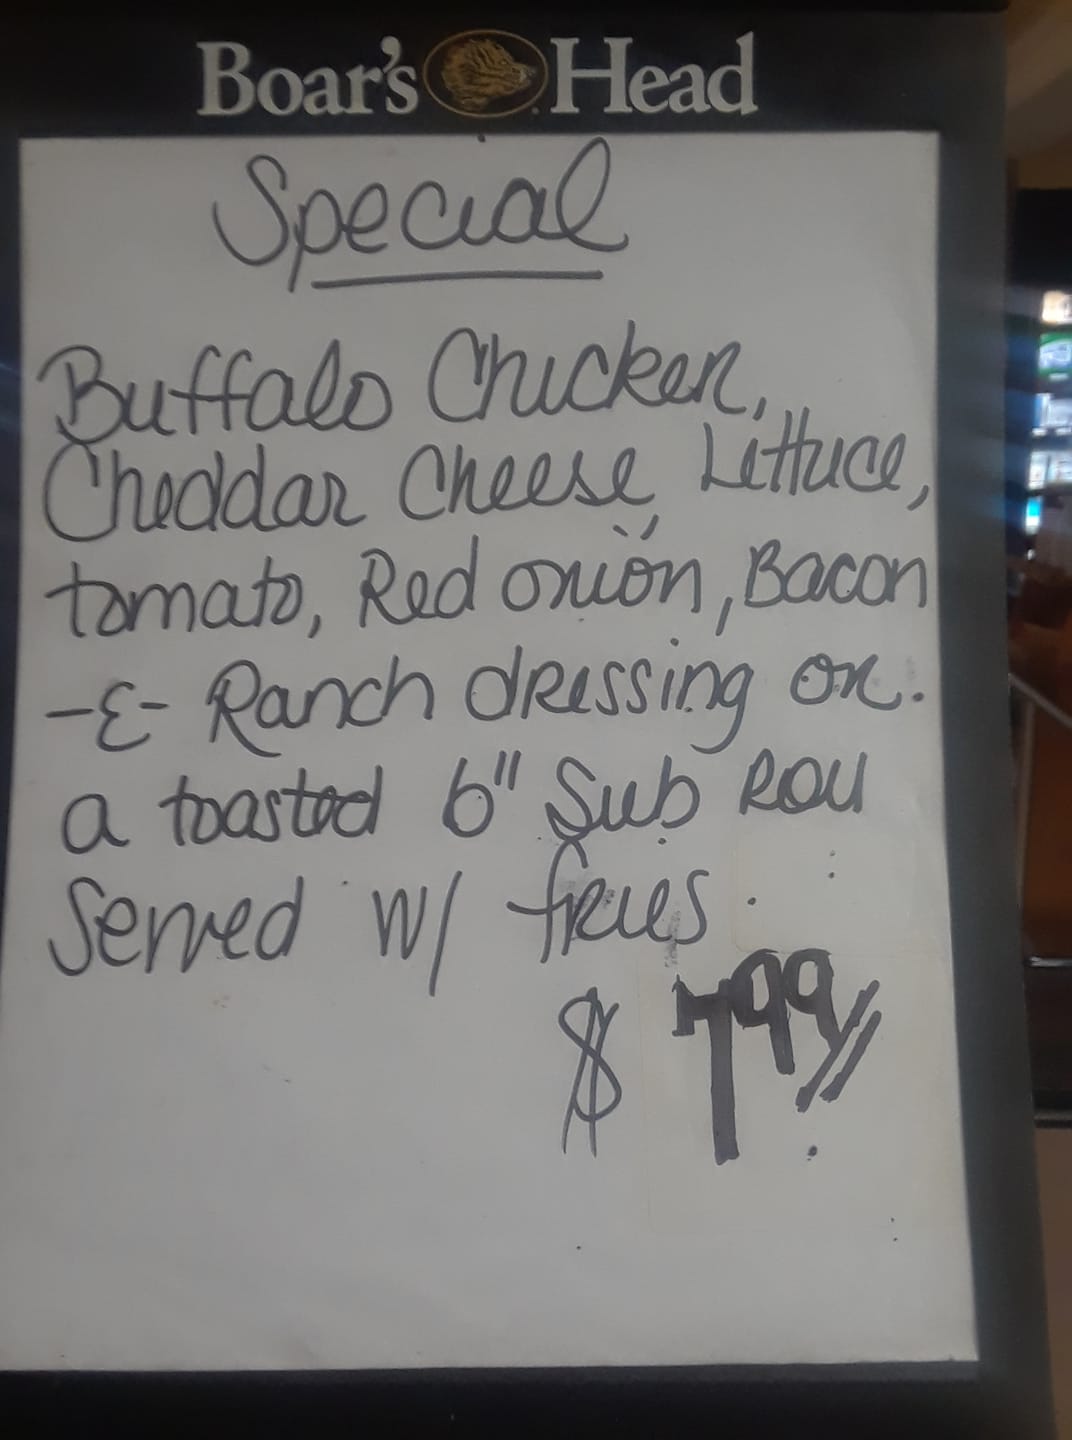 Boar's Head
Special
Buffalo Chicken,
Cheddar Cheese, Lettuce,
tomato, Red onion, Bacon
-&- Ranch dressing on
a toasted 6" Sub Roll
Served w/ fries.
$7.99